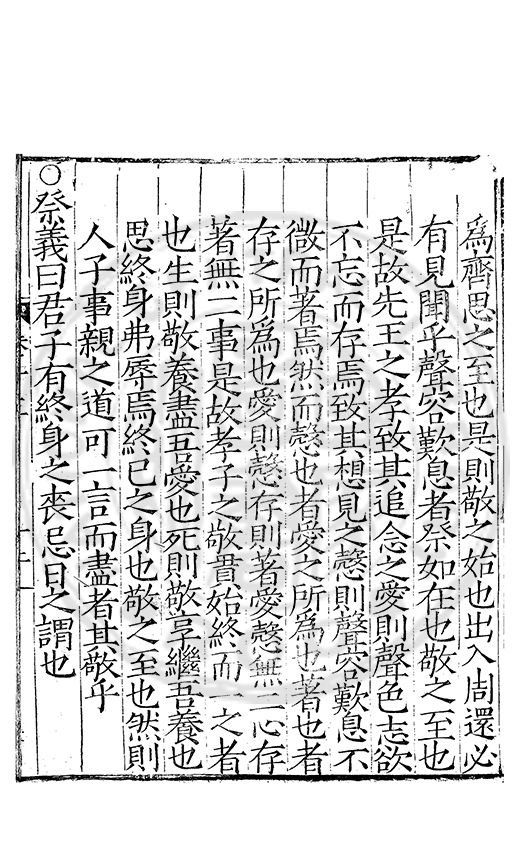 爲齊思之至也是則敬之始也出入周還必
有見聞乎聲容歎息者祭如在也敬之至也
是故先王之孝致其追念之愛則聲色志欲
不忘而存焉致其想見之慤則聲容歎息不
微而著焉然而慤也者愛之所爲也著也者
存之所爲也愛則慤存則著愛慤無二心存
著無二事是故孝子之敬貫始終而一之者
也生則敬養盡吾愛也死則敬享繼吾養也
思終身弗辱焉終己之身也敬之至也然則
人子事親之道可一言而盡者其敬乎
○祭義曰君子有終身之喪忌日之謂也